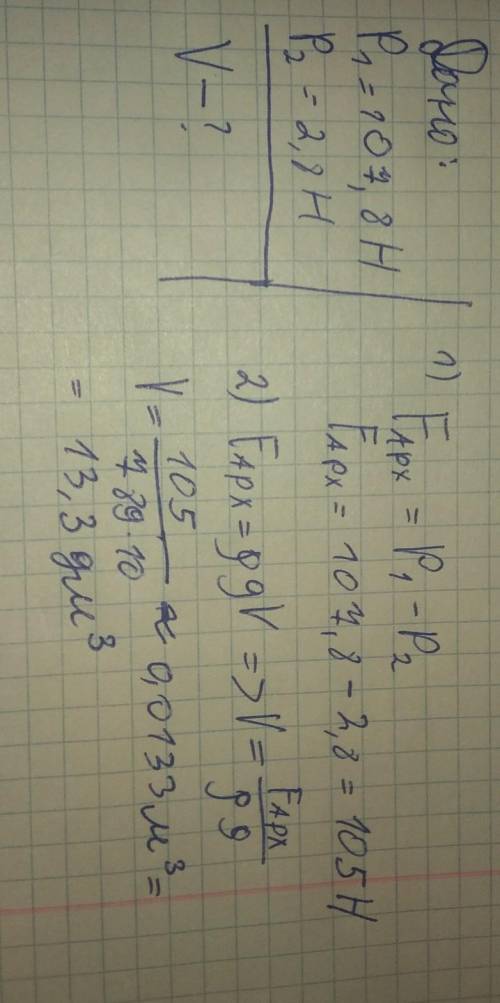 Дано:
P₁ = 107,8 Н
P₂ = 2,8 Н
V – ?
1) Fарх = P₁ – P₂
Fарх = 107,8 – 2,8 = 105 Н
2) Fарх = ρgV => V = Fарх / ρg
V = 105 / 789·10 ≈ 0,0133 м³ =
= 13,3 дм³